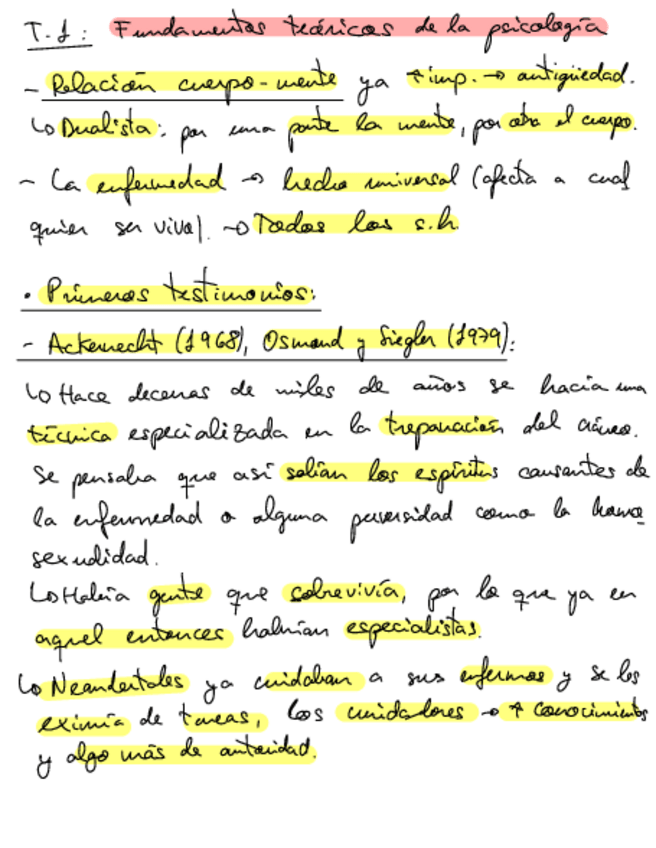 T.1: Fundamentos teóricos de la psicología
- Relación cuerpo-mente ya ↑imp. → antigüedad.
↳ Dualista: por una parte la mente, por otra el cuerpo.
- La enfermedad → hecho universal (afecta a cual
quier ser vivo). → Todos los s.h.
• Primeros testimonios:
- Ackernecht (1968), Osmond y Siegler (1979):
↳ Hace decenas de miles de años se hacía una
técnica especializada en la trepanación del cráneo.
Se pensaba que así salían los espíritus causantes de
la enfermedad o alguna perversidad como la homo
sexualidad.
↳ Había gente que sobrevivía, por lo que ya en
aquel entonces habrían especialistas.
↳ Neandertales ya cuidaban a sus enfermos y se les
eximía de tareas, los cuidadores → ↑ conocimientos
y algo más de autoridad.